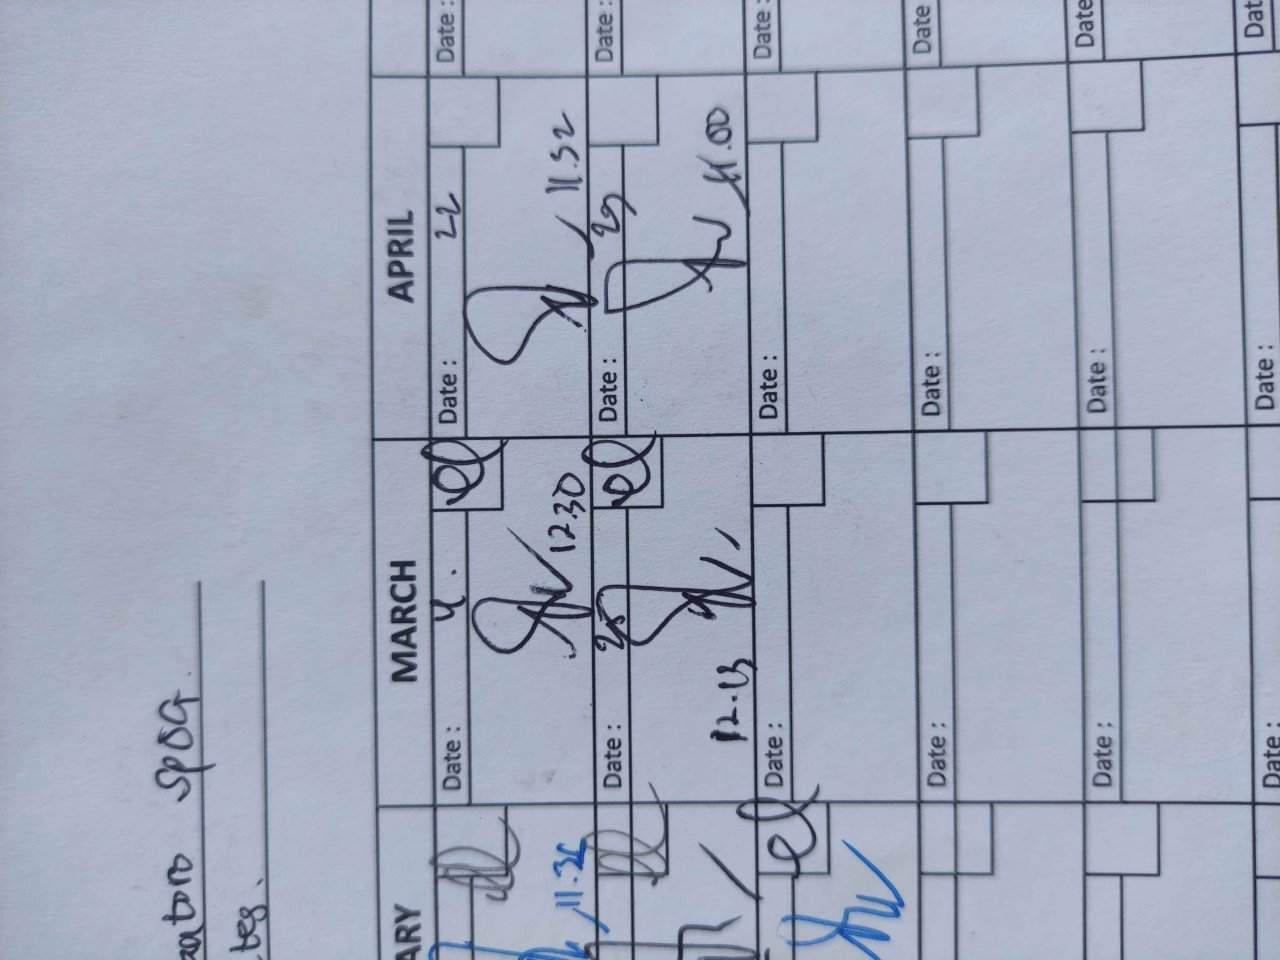 SPOG
ARY
MARCH
APRIL
Date : 4 .
Date : 22
Date :
11.32
12.30
11.52
Date : 25
Date : 29
Date :
12.13
11.00
Date :
Date :
Date :
Date :
Date :
Date :
Date :
Date :
Date
Date :
Date :
Dat